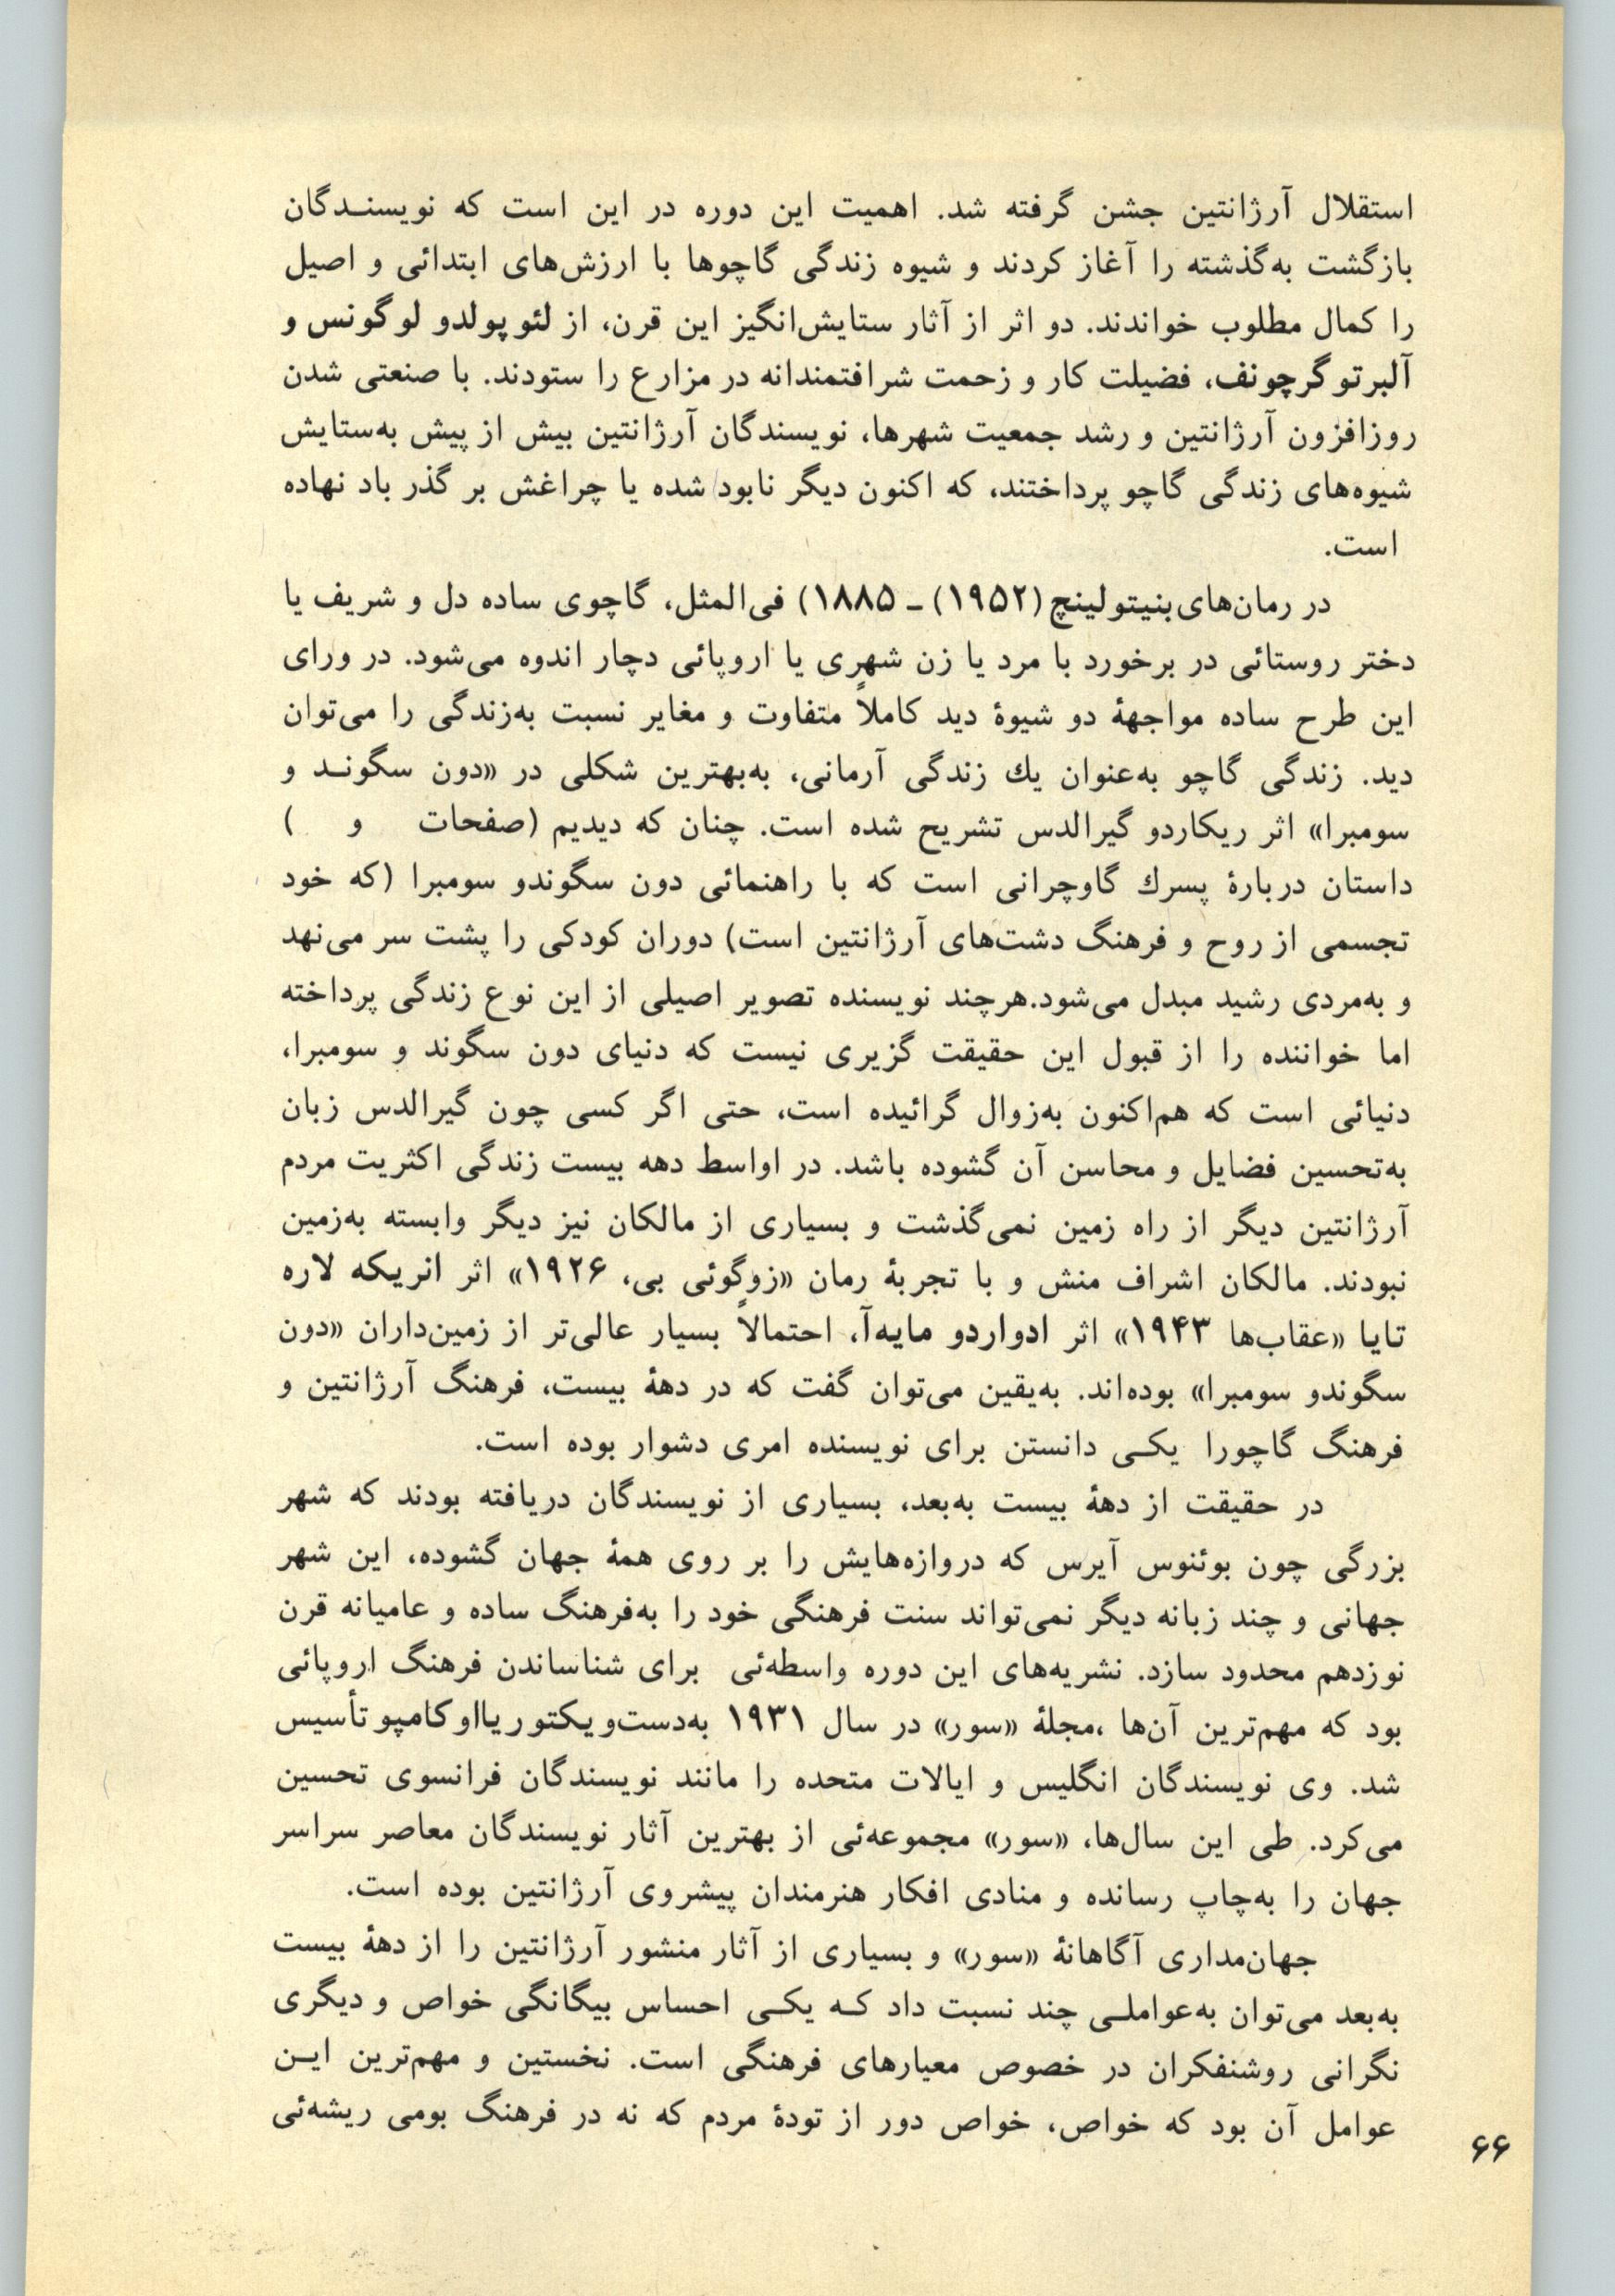 استقلال آرژانتین جشن گرفته شد. اهمیت این دوره در این است که نویسندگان
بازگشت به‌گذشته را آغاز کردند و شیوه زندگی گاچوها با ارزش‌های ابتدائی و اصیل
را کمال مطلوب خواندند. دو اثر از آثار ستایش‌انگیز این قرن، از لئوپولدو لوگونس و
آلبرتو گرچونف، فضیلت کار و زحمت شرافتمندانه در مزارع را ستودند. با صنعتی شدن
روزافزون آرژانتین و رشد جمعیت شهرها، نویسندگان آرژانتین بیش از پیش به‌ستایش
شیوه‌های زندگی گاچو پرداختند، که اکنون دیگر نابود شده یا چراغش بر گذر باد نهاده
است.
در رمان‌های بنیتولینچ (۱۹۵۲) ـ ۱۸۸۵) فی‌المثل، گاچوی ساده دل و شریف یا
دختر روستائی در برخورد با مرد یا زن شهری یا اروپائی دچار اندوه می‌شود. در ورای
این طرح ساده مواجههٔ دو شیوهٔ دید کاملاً متفاوت و مغایر نسبت به‌زندگی را می‌توان
دید. زندگی گاچو به‌عنوان یك زندگی آرمانی، به‌بهترین شکلی در «دون سگوند و
سومبرا» اثر ریکاردو گیرالدس تشریح شده است. چنان که دیدیم (صفحات و )
داستان دربارهٔ پسرك گاوچرانی است که با راهنمائی دون سگوندو سومبرا (که خود
تجسمی از روح و فرهنگ دشت‌های آرژانتین است) دوران کودکی را پشت سر می‌نهد
و به‌مردی رشید مبدل می‌شود.هرچند نویسنده تصویر اصیلی از این نوع زندگی پرداخته
اما خواننده را از قبول این حقیقت گزیری نیست که دنیای دون سگوند و سومبرا،
دنیائی است که هم‌اکنون به‌زوال گرائیده است، حتی اگر کسی چون گیرالدس زبان
به‌تحسین فضایل و محاسن آن گشوده باشد. در اواسط دهه بیست زندگی اکثریت مردم
آرژانتین دیگر از راه زمین نمی‌گذشت و بسیاری از مالکان نیز دیگر وابسته به‌زمین
نبودند. مالکان اشراف منش و با تجربهٔ رمان «زوگوئی بی، ۱۹۲۶» اثر انریکه لاره
تایا «عقاب‌ها ۱۹۴۳» اثر ادواردو مایه‌آ، احتمالاً بسیار عالی‌تر از زمین‌داران «دون
سگوندو سومبرا» بوده‌اند. به‌یقین می‌توان گفت که در دههٔ بیست، فرهنگ آرژانتین و
فرهنگ گاچورا یکی دانستن برای نویسنده امری دشوار بوده است.
در حقیقت از دههٔ بیست به‌بعد، بسیاری از نویسندگان دریافته بودند که شهر
بزرگی چون بوئنوس آیرس که دروازه‌هایش را بر روی همهٔ جهان گشوده، این شهر
جهانی و چند زبانه دیگر نمی‌تواند سنت فرهنگی خود را به‌فرهنگ ساده و عامیانه قرن
نوزدهم محدود سازد. نشریه‌های این دوره واسطه‌ئی برای شناساندن فرهنگ اروپائی
بود که مهم‌ترین آن‌ها ،مجلهٔ «سور» در سال ۱۹۳۱ به‌دست‌ویکتوریااوکامپو تأسیس
شد. وی نویسندگان انگلیس و ایالات متحده را مانند نویسندگان فرانسوی تحسین
می‌کرد. طی این سال‌ها، «سور» مجموعه‌ئی از بهترین آثار نویسندگان معاصر سراسر
جهان را به‌چاپ رسانده و منادی افکار هنرمندان پیشروی آرژانتین بوده است.
جهان‌مداری آگاهانهٔ «سور» و بسیاری از آثار منشور آرژانتین را از دههٔ بیست
به‌بعد می‌توان به‌عواملی چند نسبت داد که یکی احساس بیگانگی خواص و دیگری
نگرانی روشنفکران در خصوص معیارهای فرهنگی است. نخستین و مهم‌ترین این
عوامل آن بود که خواص، خواص دور از تودهٔ مردم که نه در فرهنگ بومی ریشه‌ئی
۶۶